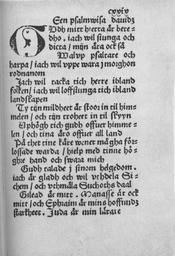 Een psalmwisa dauidz
GUdh mitt hierta är bere
dho / iach wil siunga och
dicta / mijn ära ock så
Waknp psaltare och
harpa / iach wil vppe wara j morghon
rodnanom
Jach wil tacka tich herre ibland
folken / iach wil loffsiunga tich ibland
landskapen
Ty tijn mildheet är stoor in til him-
melen / och tijn troheet in til skyyn
Vphögh tich gudh offuer himme-
len / och tina äro offuer all land
På thet tine käre wener måghe för-
lossade warda / hielp med tinne hö-
ghre hand och swara mich
Gudh talade j sinom helgedom.
iach är gladh och wil vthdela Si-
chem / och vthmäla Suchoths daal
Gilead är mitt. Manasse är ock
mitt / och Ephraim är mins hoffuudz
starkheet. Juda är min lärare